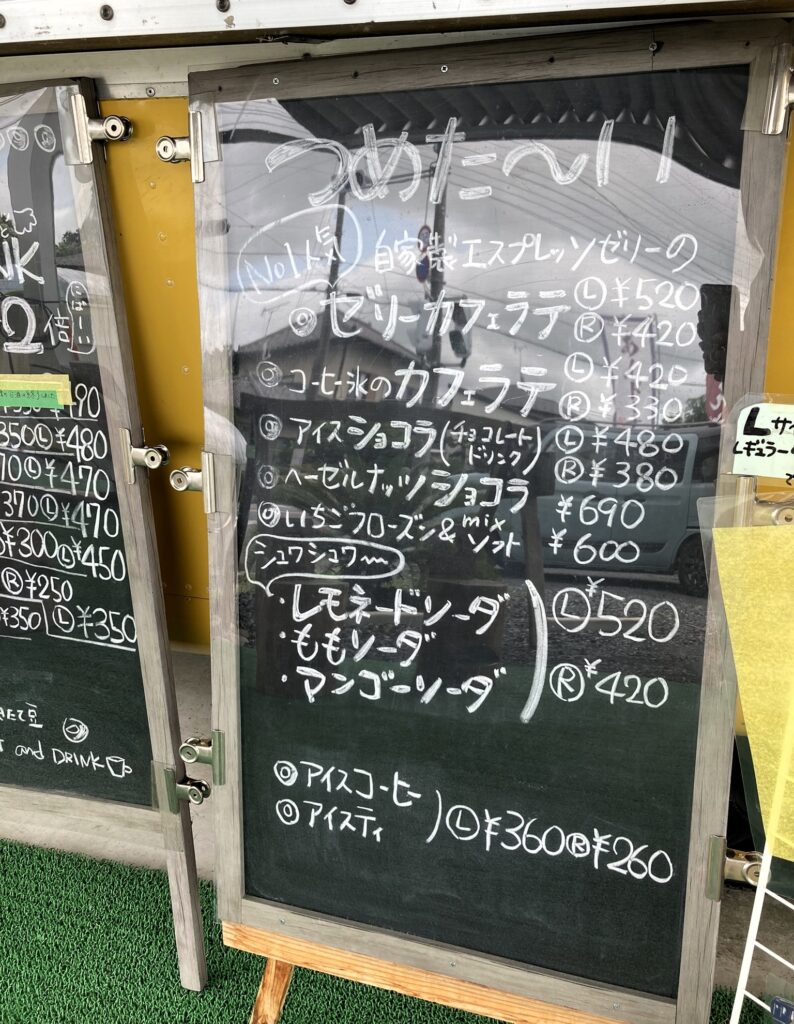 つめた〜いい
No1人気
自家製エスプレッソゼリーの
◎ゼリーカフェラテ Ⓛ¥520
Ⓡ¥420
◎コーヒー氷のカフェラテ Ⓛ¥420
Ⓡ¥330
◎アイスショコラ(チョコレートドリンク) Ⓛ¥480
Ⓡ¥380
◎ヘーゼルナッツショコラ ¥690
◎いちごフローズン&mixソフト ¥600
シュワシュワ〜
・レモネードソーダ
・ももソーダ
・マンゴーソーダ
Ⓛ¥520
Ⓡ¥420
◎アイスコーヒー
◎アイスティ
Ⓛ¥360Ⓡ¥260
NK
2倍
490
350Ⓛ¥480
70Ⓛ¥470
370Ⓛ¥470
¥300Ⓛ¥450
Ⓡ¥250
¥350 Ⓛ¥350
たて豆
and DRINK
Lサイ
レギュラーの